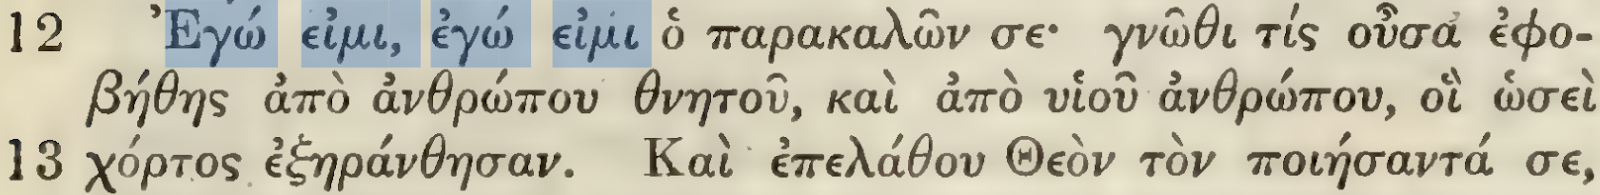 12 Ἐγώ εἰμι, ἐγώ εἰμι ὁ παρακαλῶν σε· γνῶθι τίς οὖσα ἐφο-
βήθης ἀπὸ ἀνθρώπου θνητοῦ, καὶ ἀπὸ υἱοῦ ἀνθρώπου, οἳ ὡσεὶ
13 χόρτος ἐξηράνθησαν. Καὶ ἐπελάθου Θεὸν τὸν ποιήσαντά σε,